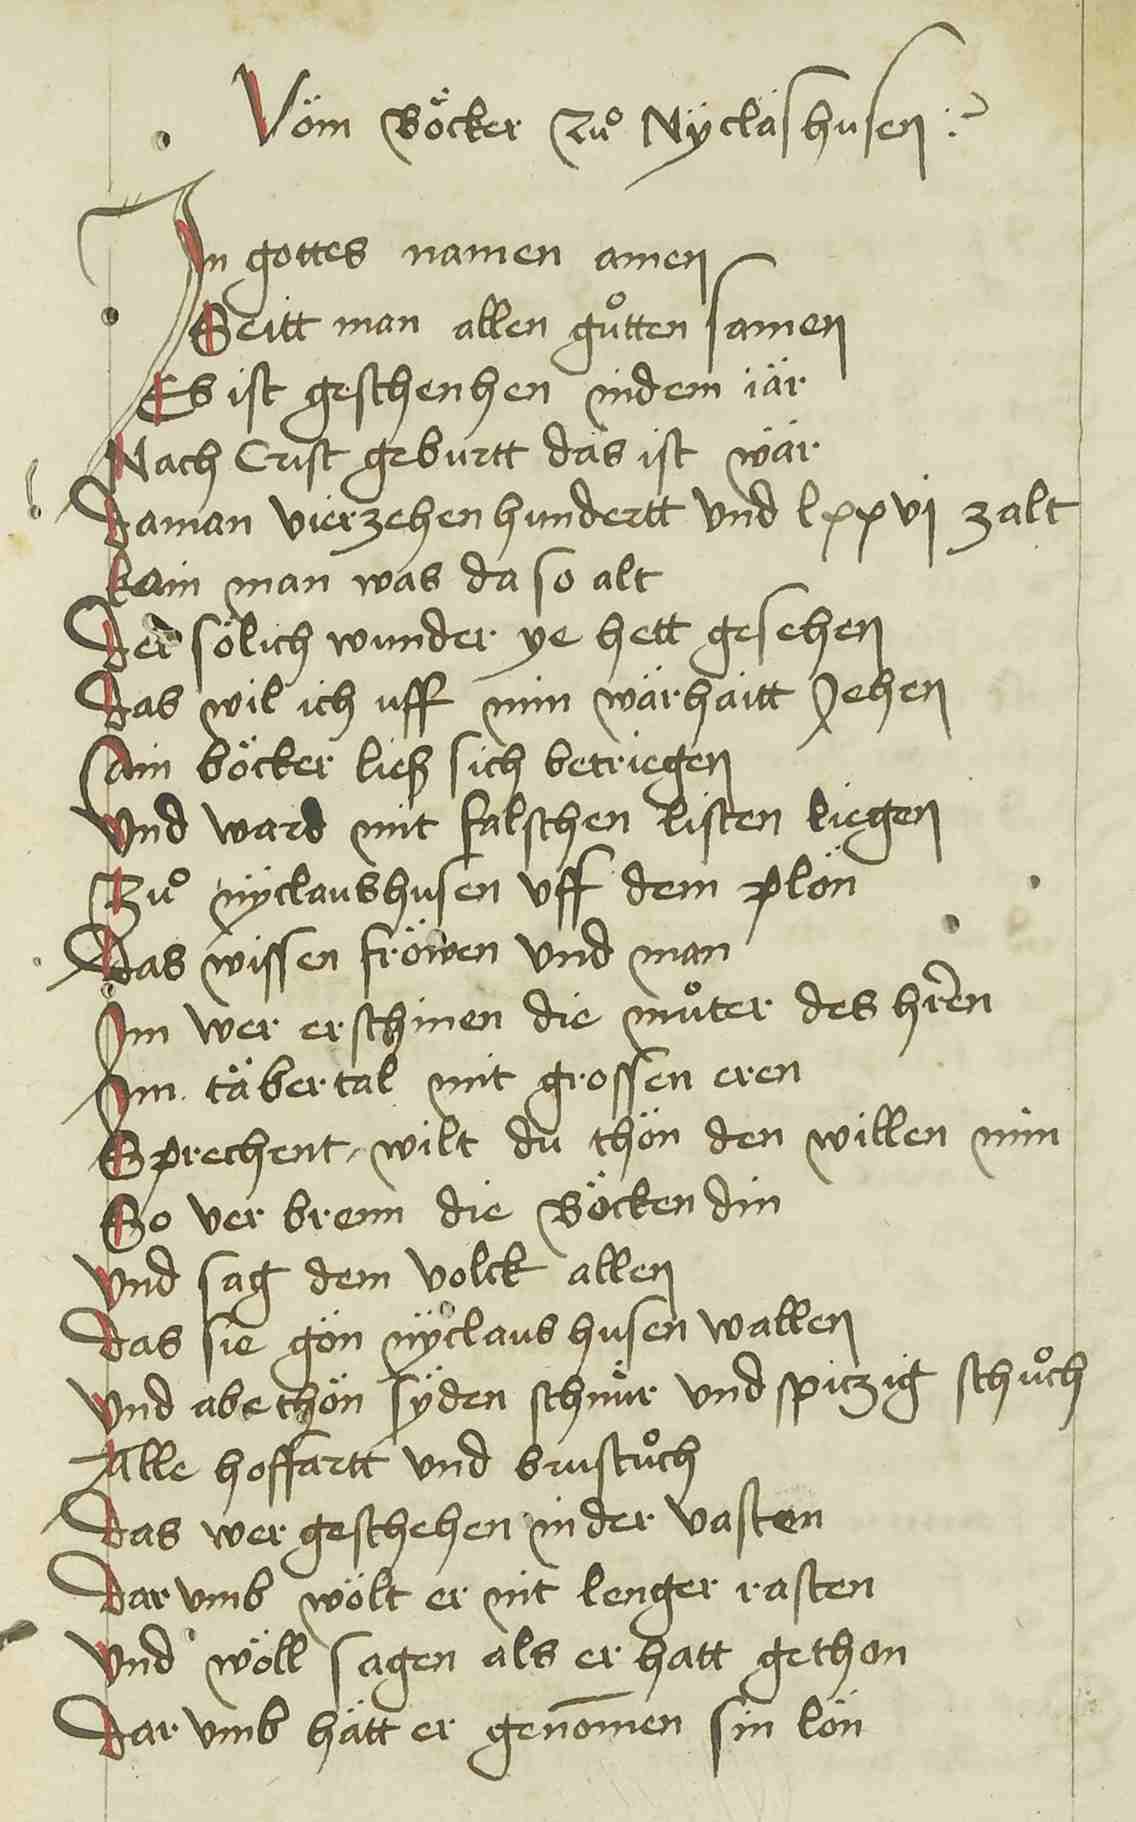 Vöm Böcker zuͦ Nÿcläshusen :~
In gottes namen amen
Seitt man allen guͦtten samen
Es ist geschenhen indem iär
Nach Crist geburtt däs ist wär
Daman vierzehenhundertt und lxxvi zalt
kain man was da so alt
Der sölich wunder ye hett gesehen
Das wil ich uff min wärhaitt Jehen
Ain böcker ließ sich betriegen
Und ward mit falschen listen liegen
Zuͦ nÿclaushusen vff dem plön
Das wissen fröwen und man
Im wer erschinen die muͦter des hr̄en
Im täbertal mit grossen eren
Sprechent, wilt du thön den willen min
So ver brenn die Böcken din
Und sag dem volck allen
Das sie gön nÿclaus husen wallen
Und abethön sÿden schnuͤr und spiczig schuͦch
Alle hoffartt und brustuͦch
Das wer geschehen inder vasten
Dar vmb wölt er nit lenger rasten
Und wöll sagen als er hatt gethon
Dar vmb hätt er genom̄en sin lön